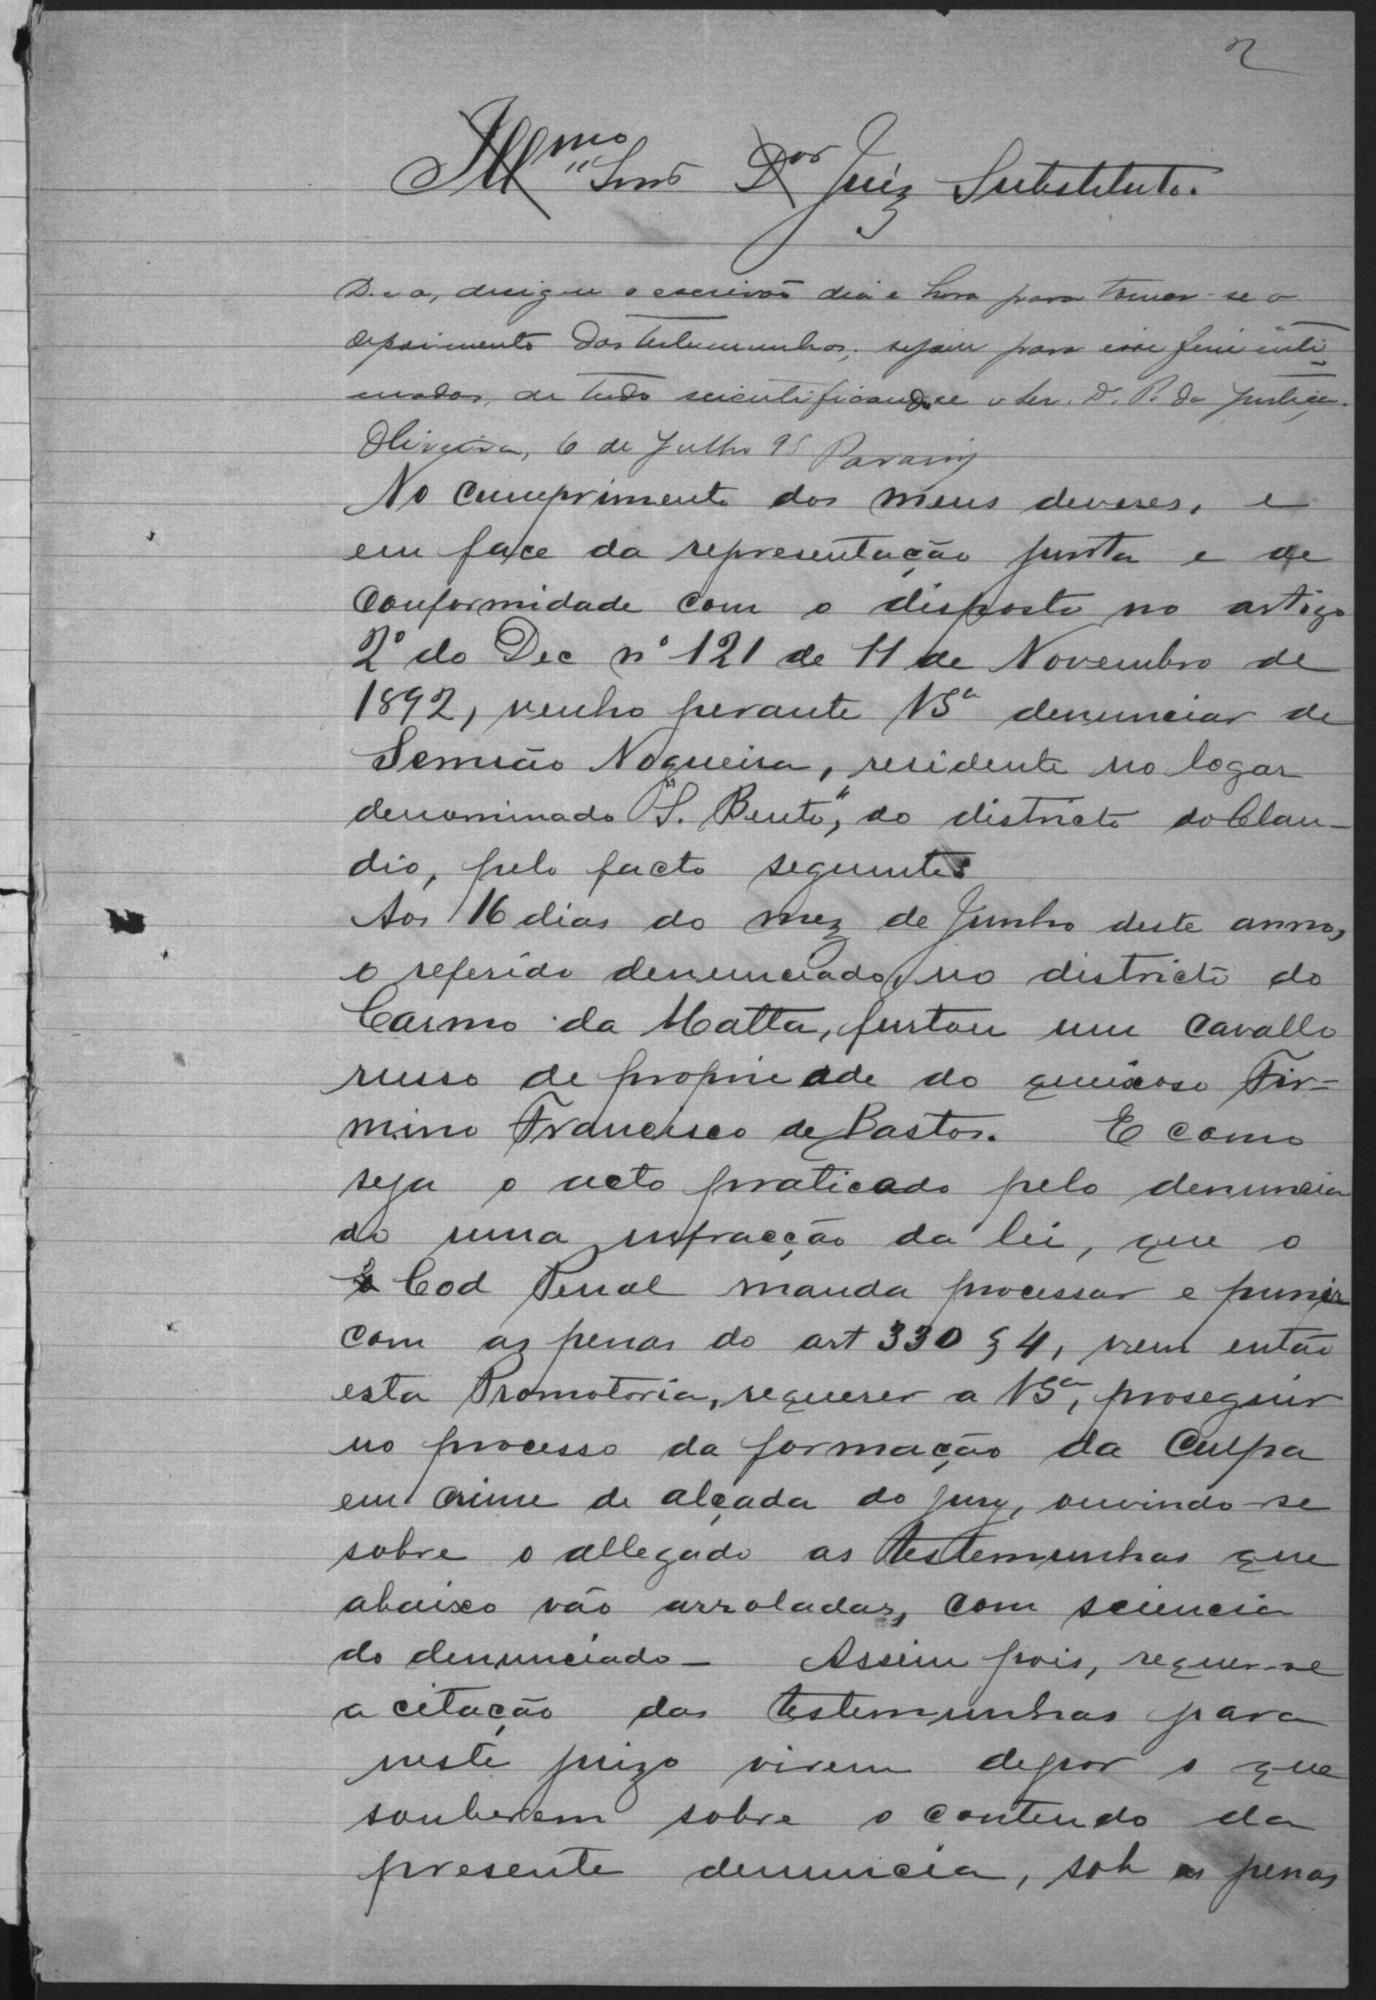 2
Illmo Snr Dor Juiz Substituto.
D. e a, designe o escrivão dia e hora para tomar-se o
depoimento das testemunhas, sejam para esse fim inti-
madas, de tudo scientificando-se o Snr. Dr. P. da Justiça.
Oliveira, 6 de Julho 95
No cumprimento dos meus deveres, e
em face da representação junta e de
conformidade com o disposto no artigo
2º do Dec nº 121 de 11 de Novembro de
1892, venho perante VSª denunciar de
Semião Nogueira, residente no logar
denominado "S. Bento", do districto do Clau-
dio, pelo facto seguinte:
Aos 16 dias do mez de Junho deste anno,
o referido denunciado, no districto do
Carmo da Matta, furtou um cavallo
russo de propriedade do queixoso Fir-
mino Francisco de Bastos. E como
seja o acto praticado pelo denuncia
do uma infracção da lei, que o
Cod Penal manda processar e punir
com as penas do art 330 § 4, vem então
esta Promotoria, requerer a VSª, proseguir
no processo da formação da culpa
em crime de alçada do jury, ouvindo-se
sobre o allegado as testemunhas que
abaixo vão arroladas, com sciencia
do denunciado — Assim pois, requer-se
a citação das testemunhas para
neste juizo virem depor o que
souberem sobre o contendo da
presente denuncia, sob as penas